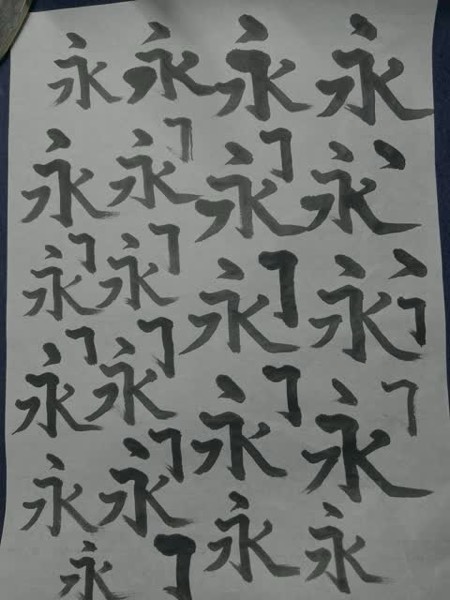 永永永永
永永永永
永永永永
永永永永
永永永永
永